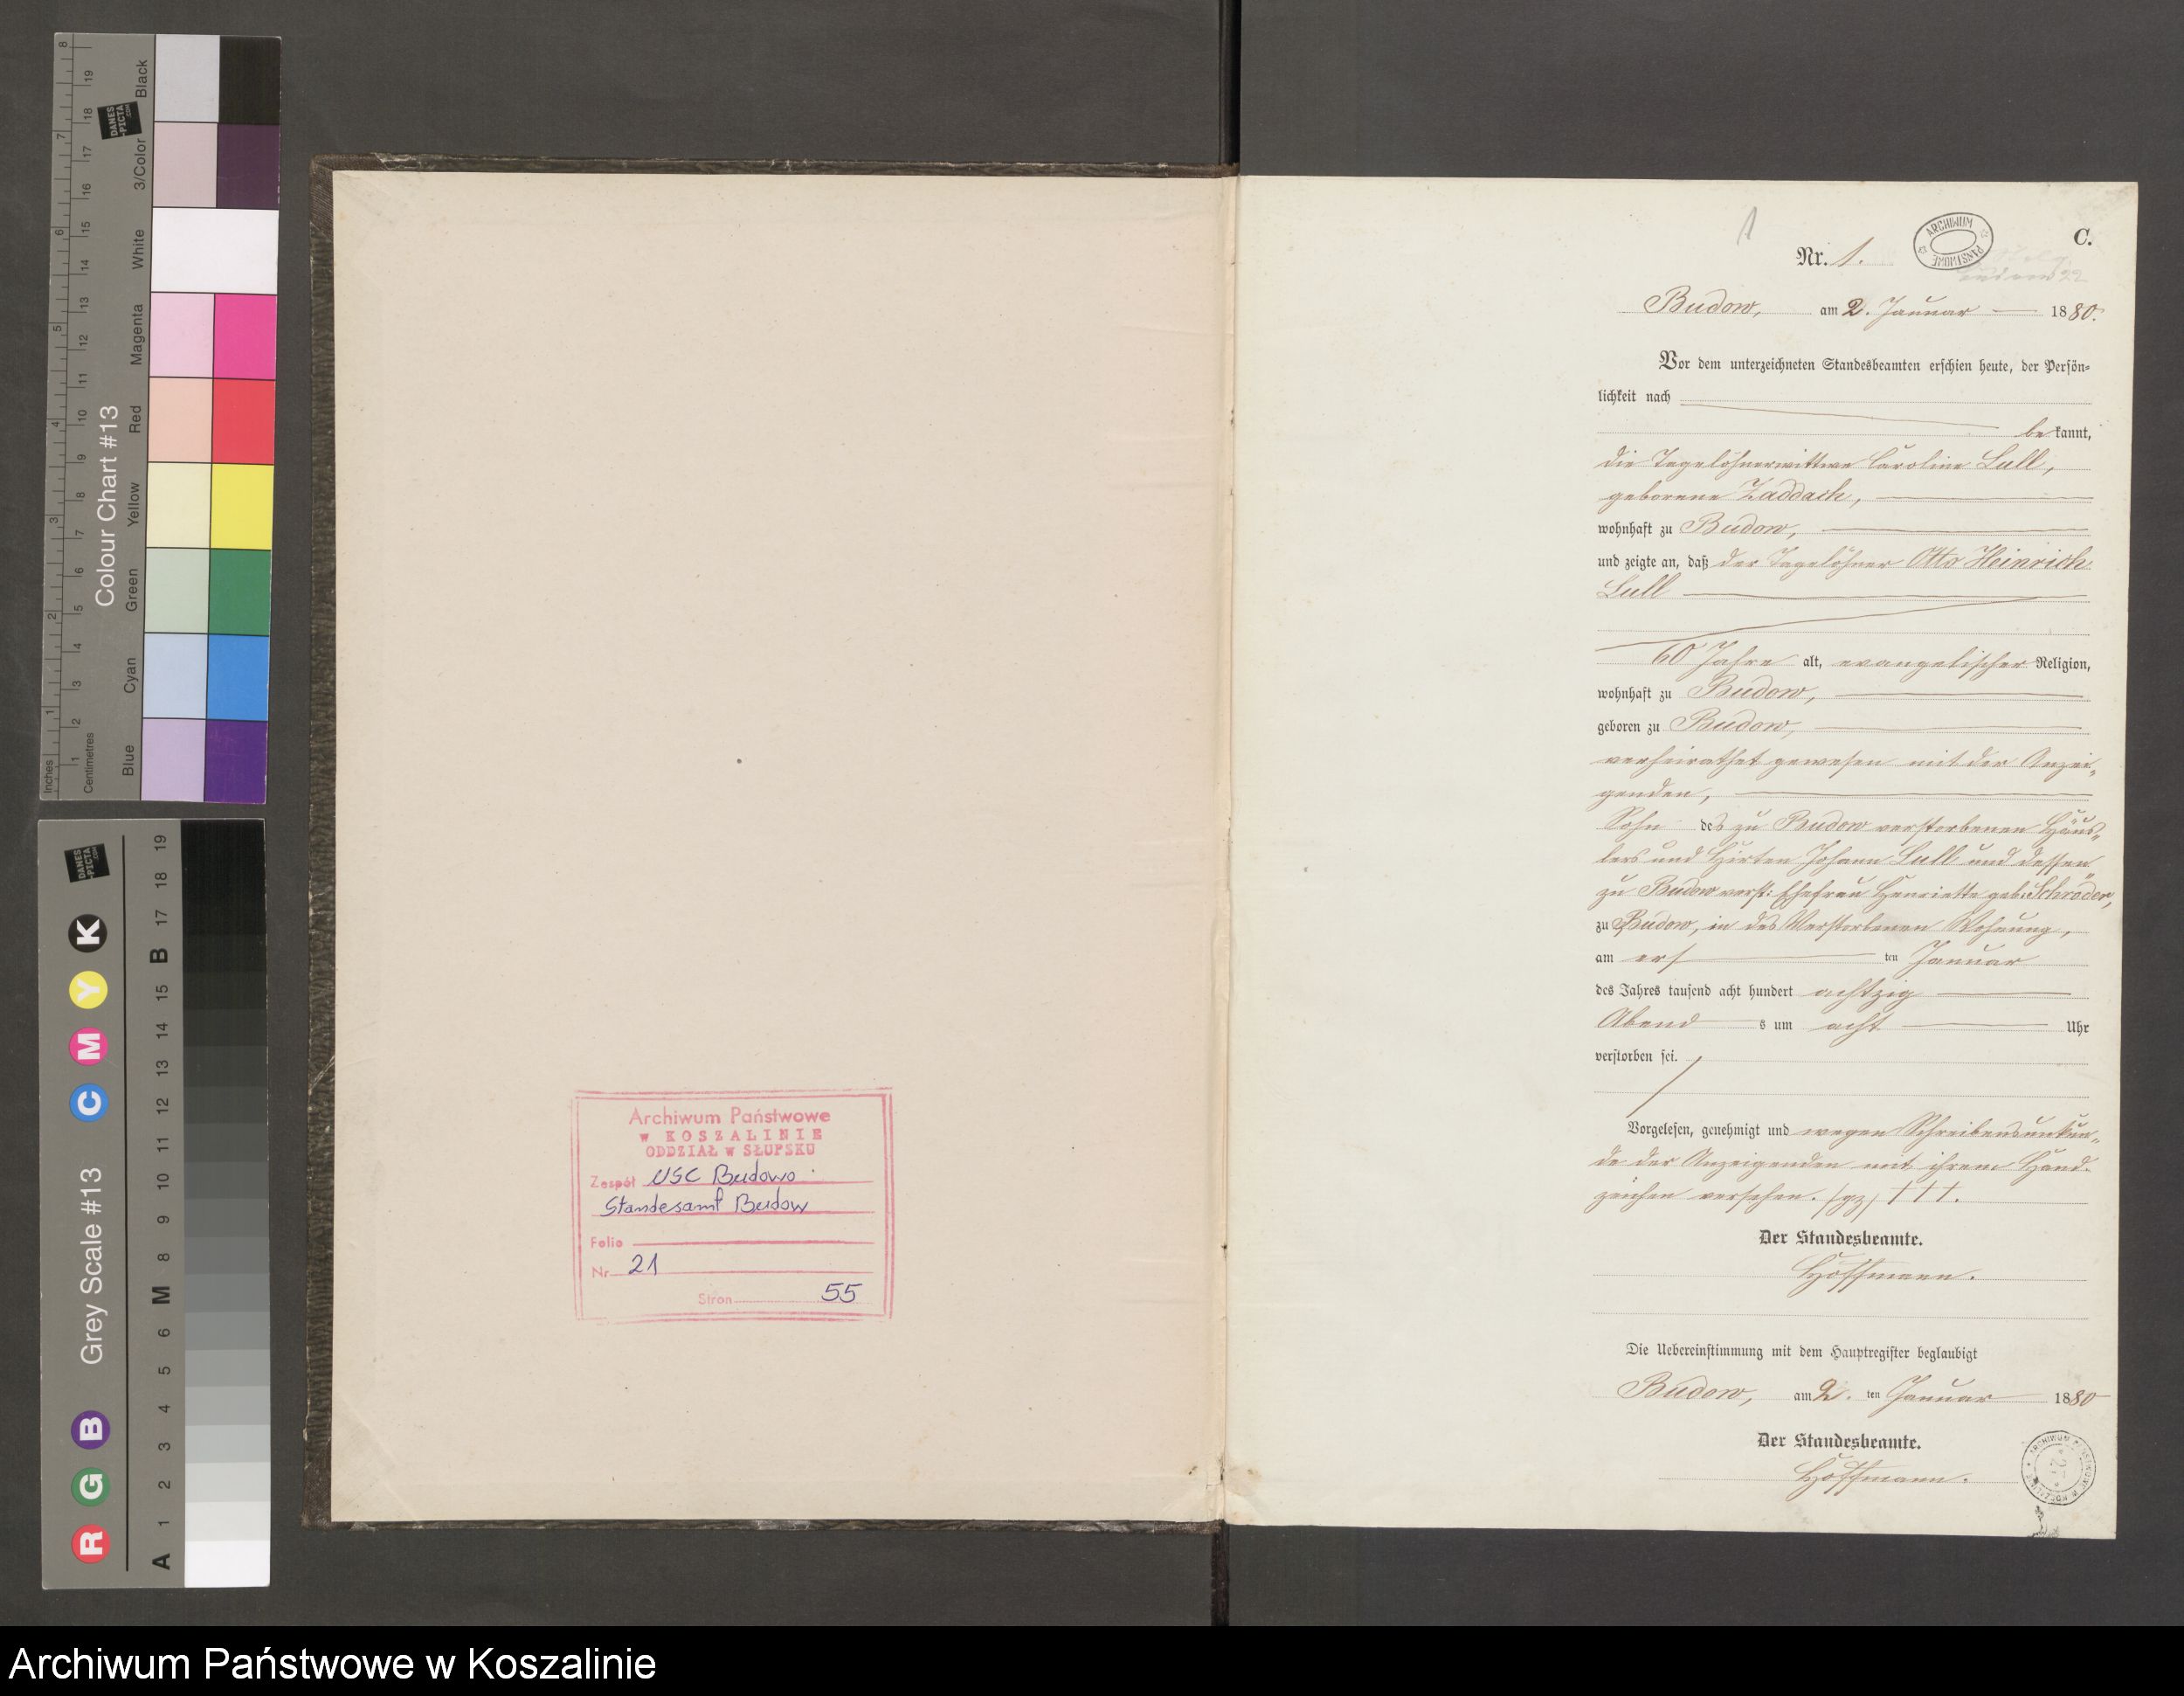 Colour Chart #13
Black
3/Color
White
Magenta
Red
Yellow
Green
Cyan
Blue
Inches
Centimetres
DANES
-PICTA
.COM
Grey Scale #13
R G B C M Y K
A 1 2 3 4 5 6 M 8 9 10 11 12 13 14 15 B 17 18 19
Archiwum Państwowe
w KOSZALINIE
ODDZIAŁ w SŁUPSKU
Zespół USC Budowo
Standesamt Budow
Folio
Nr 21
Stron 55
1
C.
Nr. 1.
ARCHIWUM PAŃSTWOWE
Budow, am 2. Januar 1880.
Vor dem unterzeichneten Standesbeamten erschien heute, der Persön-
lichkeit nach
bekannt,
die Tagelöhnerwittwe Caroline Lull,
geborene Zaddach,
wohnhaft zu Budow,
und zeigte an, daß der Tagelöhner Otto Heinrich
Lull
60 Jahre alt, evangelischer Religion,
wohnhaft zu Budow,
geboren zu Budow,
verheirathet gewesen mit der Anzei-
genden,
Sohn des zu Budow verstorbenen Häus-
lers und Hirten Johann Lull und dessen
zu Budow verst: Ehefrau Henriette geb: Schröder,
zu Budow, in des Verstorbenen Wohnung,
am ersten Januar
des Jahres tausend acht hundert achtzig
Abends um acht Uhr
verstorben sei.
Vorgelesen, genehmigt und wegen Schreibensunkun-
de der Anzeigenden mit ihrem Hand-
zeichen versehen. (gz) †††.
Der Standesbeamte.
Hoffmann.
Die Uebereinstimmung mit dem Hauptregister beglaubigt
Budow, am 2. ten Januar 1880
Der Standesbeamte.
Hoffmann.
Archiwum Państwowe w Koszalinie